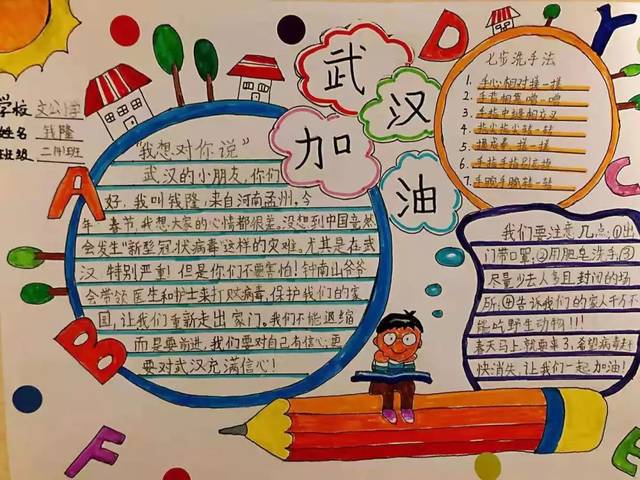 学校 文公小学
姓名 钱隆
班级 二(4)班
武汉
加油
"我想对你说"
武汉的小朋友,你们
好,我叫钱隆,来自河南孟州。今
年春节,我想大家的心情都很差。没想到中国竟然
会发生"新型冠状病毒"这样的灾难。尤其是在武
汉特别严重!但是你们不要害怕!钟南山爷爷
会带领医生和护士来打败病毒,保护我们的家
国,让我们重新走出家门。我们不能退缩
而是要前进,我们要对自己有信心,更
要对武汉充满信心!
七步洗手法
1. 手心相对搓一搓
2. 手背相靠
3. 手指中缝相交叉
4. 指尖指尖转一转
5. 握成拳搓一搓
6. 手指手指别忘掉
7. 手腕手腕转一转
我们要注意几点:①出
门带口罩,②用肥皂洗手,③
尽量少去人多且封闭的场
所,④告诉我们的家人千万不
能吃野生动物!!!
春天马上就要来了,希望病毒赶
快消失,让我们一起加油!
A
B
F
D
Y
C
E